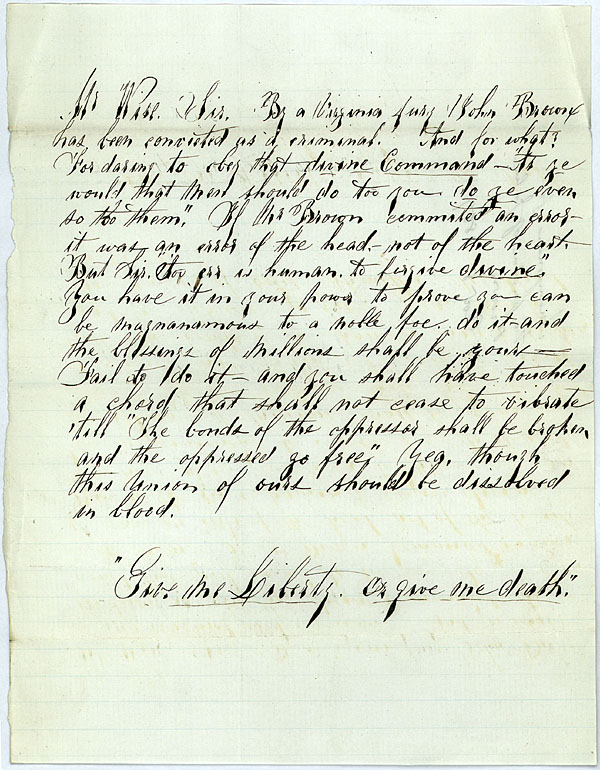 Mr Wise. Sir. By a Virginia jury John Brown
has been convicted as a criminal. And for what?
For daring to obey that divine Command – "As ye
would that men should do too you do ye even
so too them". If Mr Brown commited an error –
it was an error of the head – not of the heart.
But Sir. "Too err is human. to forgive divine".
You have it in your power to prove you can
be magnanamous to a noble foe. do it – and
the blessings of Millions shall be yours –
Fail to do it – and you shall have touched
a chord that shall not cease to vibrate
'till "The bonds of the oppressor shall be broken
and the oppressed go free". Yea, though
this Union of ours should be dissolved
in blood.
"Give me Liberty. or give me death".